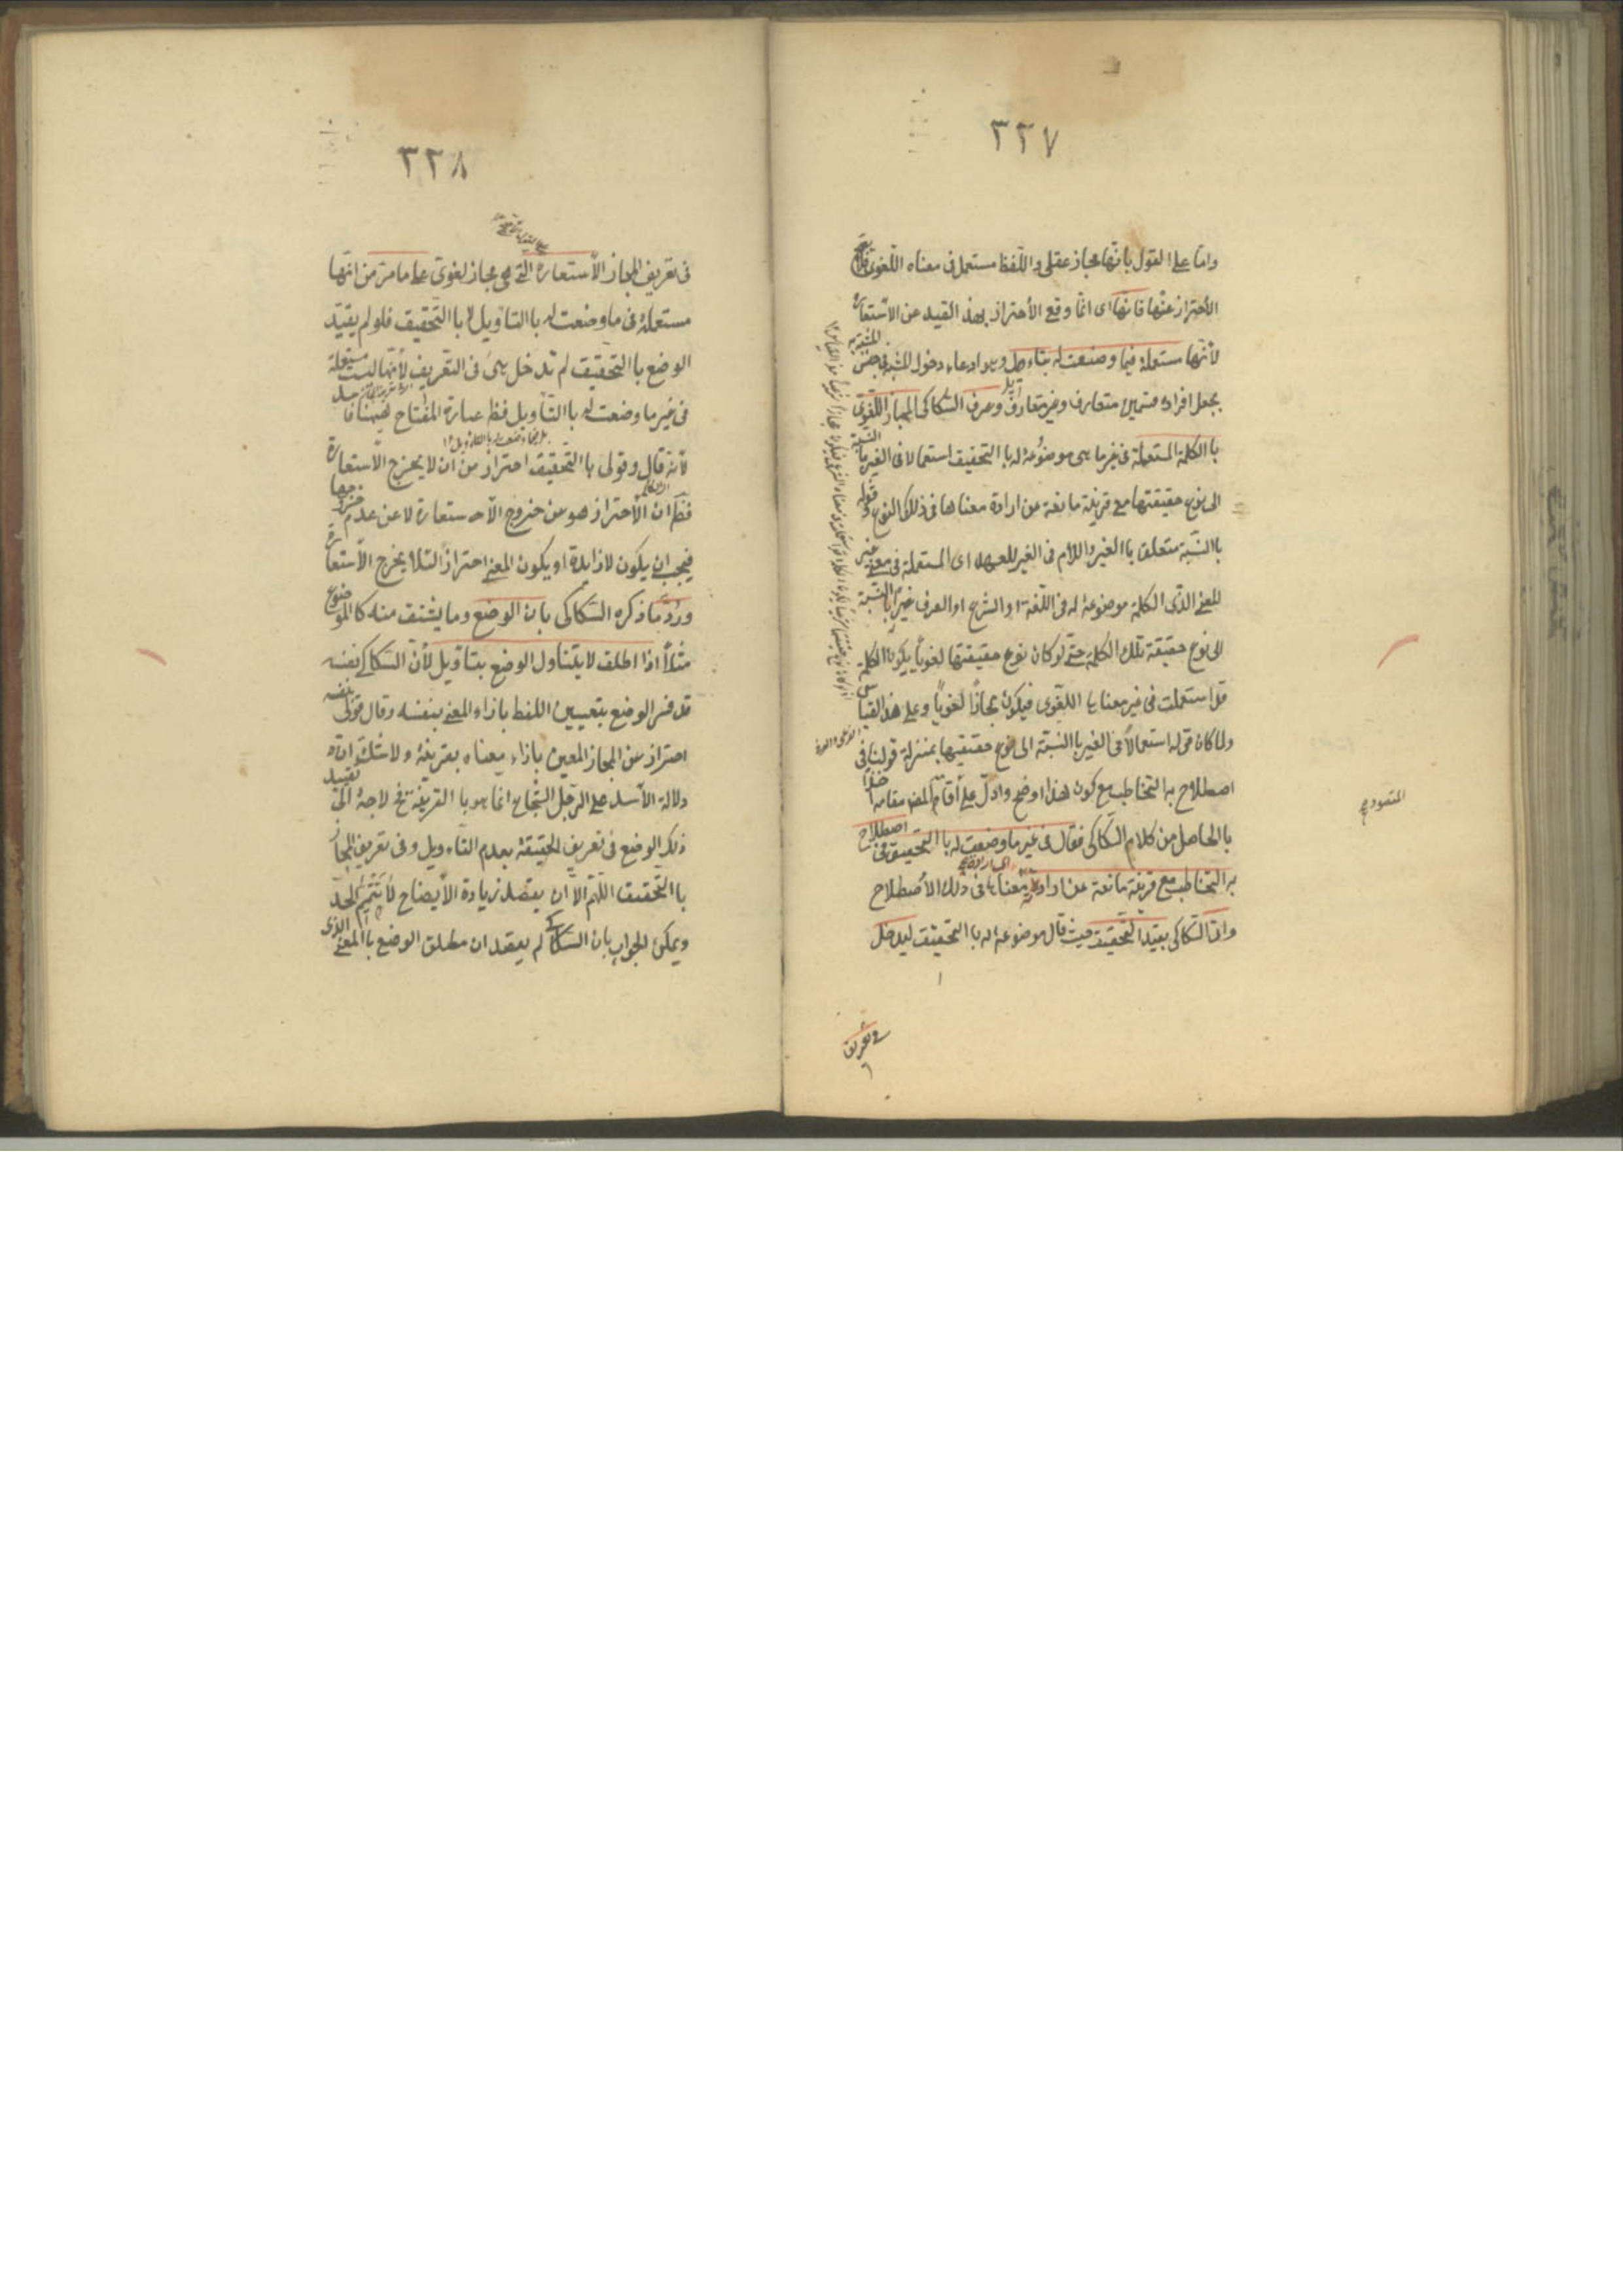 ٣٣٧
واما على القول بانها مجاز عقلى واللفظ مستعمل فى معناه اللغوى فلا يصح
الأحتراز عنها فانها اى انما وقع الأحتراز بهذ القيد عن الاستعارة
لأنها مستعملة فيما وضعت له بتاءويل وهو ادعاء دخول المشبه فى جنس المشبه به
بجعل افراده قسمين متعارف وغير متعارف وعرف السّكاكى المجاز اللغوى
با الكلمة المستعملة فى غير ما هى موضوعة له با التحقيق استعمالا فى الغير با النسبة
الى نوع حقيقتها مع قرينة مانعة عن ارادة معناها فى ذلك النوع وقوله
با النسّبة متعلق با الغير واللام فى الغير للعهد اى المستعملة فى معنى غير
المعنى الذى الكلمة موضوعة له فى اللغة او الشرع او العرف غيرا با النسبة
الى نوع حقيقة تلك الكلمة حتى لو كان نوع حقيقتها لغويا يكون الكلمة
قد استعملت فى غير معناها اللغوى فيكون مجازًا لغويًا وعلى هذ القياس
ولما كان قوله استعمالاً فى الغير با النسبة الى نوع حقيقتها بمنزلة قولنا فى
اصطلاح به التخاطب مع كون هذا اوضح وادل على أقام المض مقامه اخذا
با الحاصل من كلام السكاكى فقال فى غير ما وضعت له با التحقيق فى اصطلاح
به التخاطب مع قرينة مانعة عن ارادته اى ارادة معناها فى ذلك الأصطلاح
واتا السّكاكى بقيد التحقيق حيث قال موضوعة له با التحقيق ليدخل
فى تعريف
المقصود
٣٣٨
فى تعريف المجاز الأستعارة التى هى مجاز لغوى على ما مر من انها
مستعملة فى ما وضعت له با التاويل لا با التحقيق فلو لم يقيد
الوضع با التحقيق لم تدخل هى فى التعريف لأنها ليست مستعملة
فى غير ما وضعت له با التاويل فظ عبارة المفتاح ههنا فاسد
لأنه قال وقولى با التحقيق احتراز من ان لا يخرج الأستعارة
فظ ان الأحتراز هو من خروج الأستعارة لا عن عدم خروجها
فيجب ان يكون لا زايدة او يكون المعنى احتراز التلا يخرج الأستعارة
ورد ما ذكره السكاكى بان الوضع وما يشتق منه كا الموضوع
مثلاً اذا اطلق لا يتناول الوضع بتاويل لأن السكاكى نفسه
قد فسر الوضع بتعيين اللفظ بازاء المعنى بنفسه وقال قولى بنفسه
احتراز عن المجاز المعين بازاء معناه بقرينة ولا شك ان
دلالة الأسد على الرجل الشجاع انما هو با القرينة فح لا حاجة الى تقييد
ذلك الوضع فى تعريف الحقيقة بعدم التاءويل وفى تعريف المجاز
با التحقيق اللهم الا ان يقصد زيادة الأيضاح لا تتميم الحد
ويمكن الجواب بان السكاكى لم يقصد ان مطلق الوضع با المعنى الذى